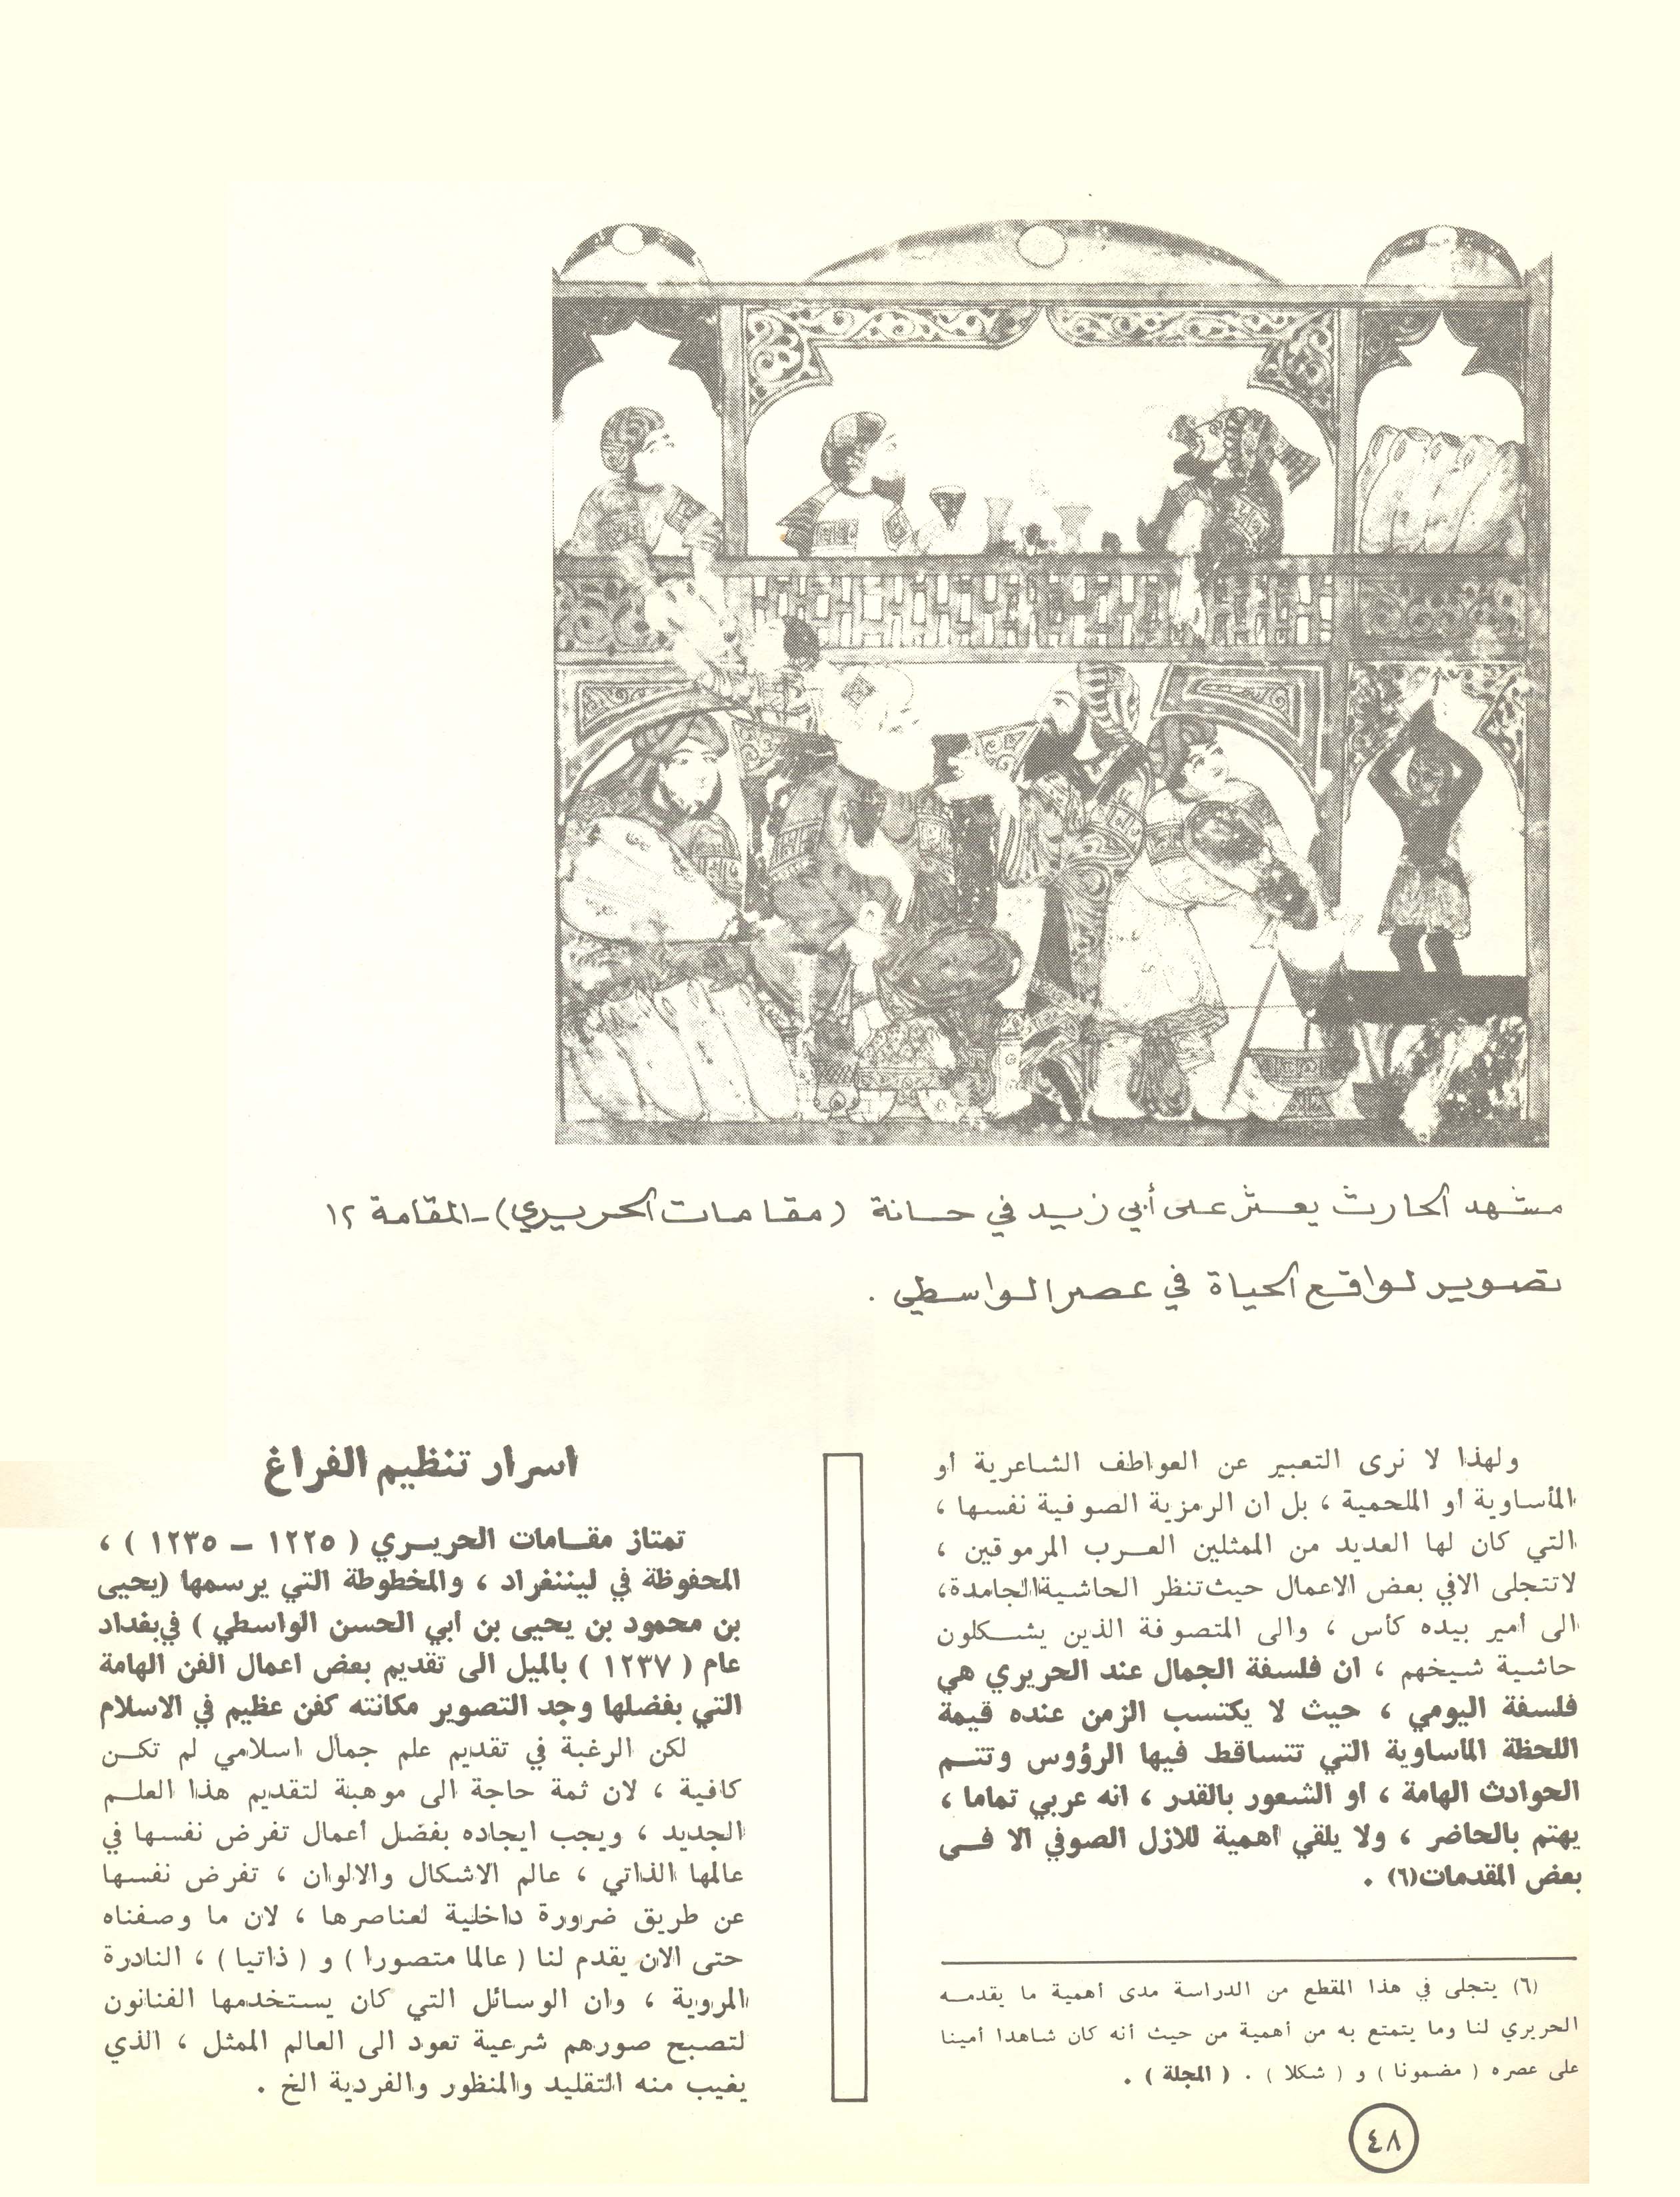 مشهد الحارث يعثر على أبي زيد في حانة (مقامات الحريري) - المقامة ١٢
تصوير لواقع الحياة في عصر الواسطي .
ولهذا لا نرى التعبير عن العواطف الشاعرية أو
المأساوية أو الملحمية ، بل ان الرمزية الصوفية نفسها ،
التي كان لها العديد من الممثلين العرب المرموقين ،
لاتتجلى الافي بعض الاعمال حيث تنظر الحاشية الجامدة،
الى أمير بيده كأس ، والى المتصوفة الذين يشكلون
حاشية شيخهم ، ان فلسفة الجمال عند الحريري هي
فلسفة اليومي ، حيث لا يكتسب الزمن عنده قيمة
اللحظة المأساوية التي تتساقط فيها الرؤوس وتتم
الحوادث الهامة ، او الشعور بالقدر ، انه عربي تماما ،
يهتم بالحاضر ، ولا يلقي أهمية للازل الصوفي الا في
بعض المقدمات(٦) .
(٦) يتجلى في هذا المقطع من الدراسة مدى أهمية ما يقدمه
الحريري لنا وما يتمتع به من أهمية من حيث أنه كان شاهدا أمينا
على عصره ( مضمونا ) و ( شكلا ) . ( المجلة ) .
اسرار تنظيم الفراغ
تمتاز مقامات الحريري ( ١٢٢٥ – ١٢٣٥ ) ،
المحفوظة في ليننغراد ، والمخطوطة التي يرسمها (يحيى
بن محمود بن يحيى بن ابي الحسن الواسطي ) في بغداد
عام ( ١٢٣٧ ) بالميل الى تقديم بعض اعمال الفن الهامة
التي بفضلها وجد التصوير مكانته كفن عظيم في الاسلام
لكن الرغبة في تقديم علم جمال اسلامي لم تكن
كافية ، لان ثمة حاجة الى موهبة لتقديم هذا العلم
الجديد ، ويجب ايجاده بفضل أعمال تفرض نفسها في
عالمها الذاتي ، عالم الاشكال والالوان ، تفرض نفسها
عن طريق ضرورة داخلية لعناصرها ، لان ما وصفناه
حتى الان يقدم لنا ( عالما متصورا ) و ( ذاتيا ) ، النادرة
المروية ، وان الوسائل التي كان يستخدمها الفنانون
لتصبح صورهم شرعية تعود الى العالم الممثل ، الذي
يغيب منه التقليد والمنظور والفردية الخ .
٤٨